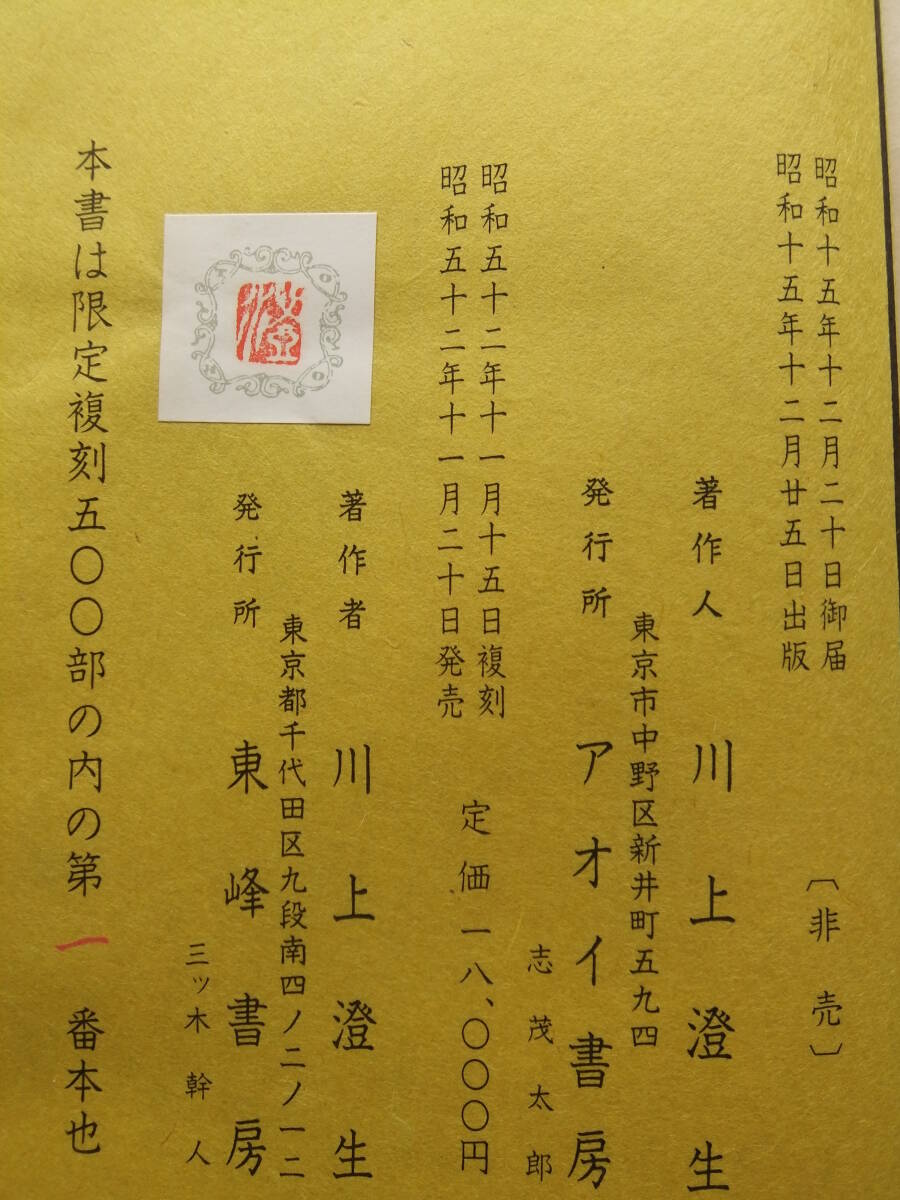 昭和十五年十二月二十日御届
昭和十五年十二月廿五日出版
〔非売〕
著作人 川上澄生
東京市中野区新井町五九四
発行所 アオイ書房
志茂太郎
昭和五十二年十一月十五日複刻
昭和五十二年十一月二十日発売
定価一八、〇〇〇円
著作者 川上澄生
東京都千代田区九段南四ノ二ノ一二
発行所 東峰書房
三ッ木幹人
澄
本書は限定複刻五〇〇部の内の第一番本也